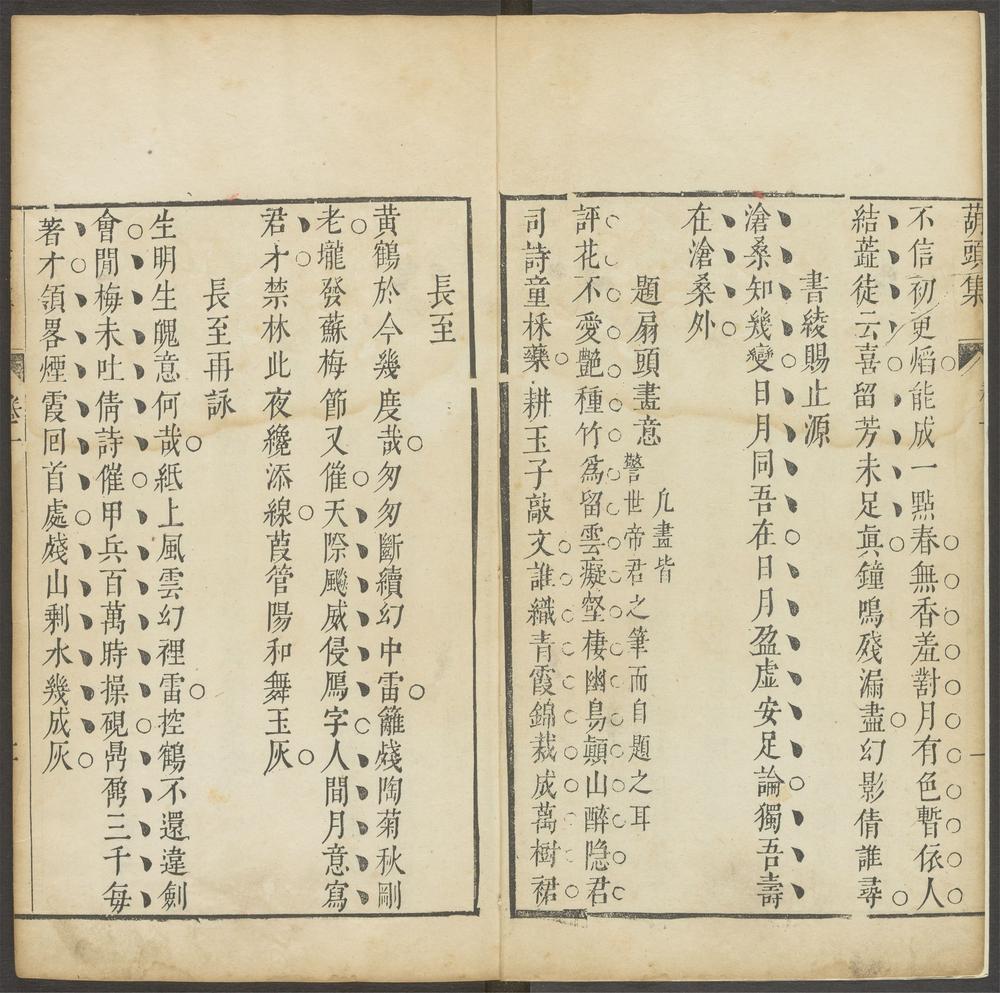 葫頭集
不信初更熖能成一點春無香羞對月有色暫依人
結蘂徒云喜留芳未足真鐘鳴殘漏盡幻影倩誰尋
書綾賜止源
滄桑知幾變日月同吾在日月盈虛安足論獨吾壽
在滄桑外
題扇頭畫意
凡畫皆
警世帝君之筆而自題之耳
評花不愛艷種竹為留雲癡壑棲幽鳥顛山醉隐君
司詩童採藥耕玉子敲文誰織青霞錦裁成萬樹裙
長至
黃鶴於今幾度哉匆匆斷續幻中雷籬殘陶菊秋剛
老壠發蘇梅節又催天際颷威侵鴈字人間月意寫
君才禁林此夜纔添線葭管陽和舞玉灰
長至再詠
生明生魄意何哉紙上風雲幻裡雷控鶴不還違劍
會閒梅未吐倩詩催甲兵百萬時操硯鼎奫三千每
著才領畧煙霞囘首處殘山剩水幾成灰
卷一